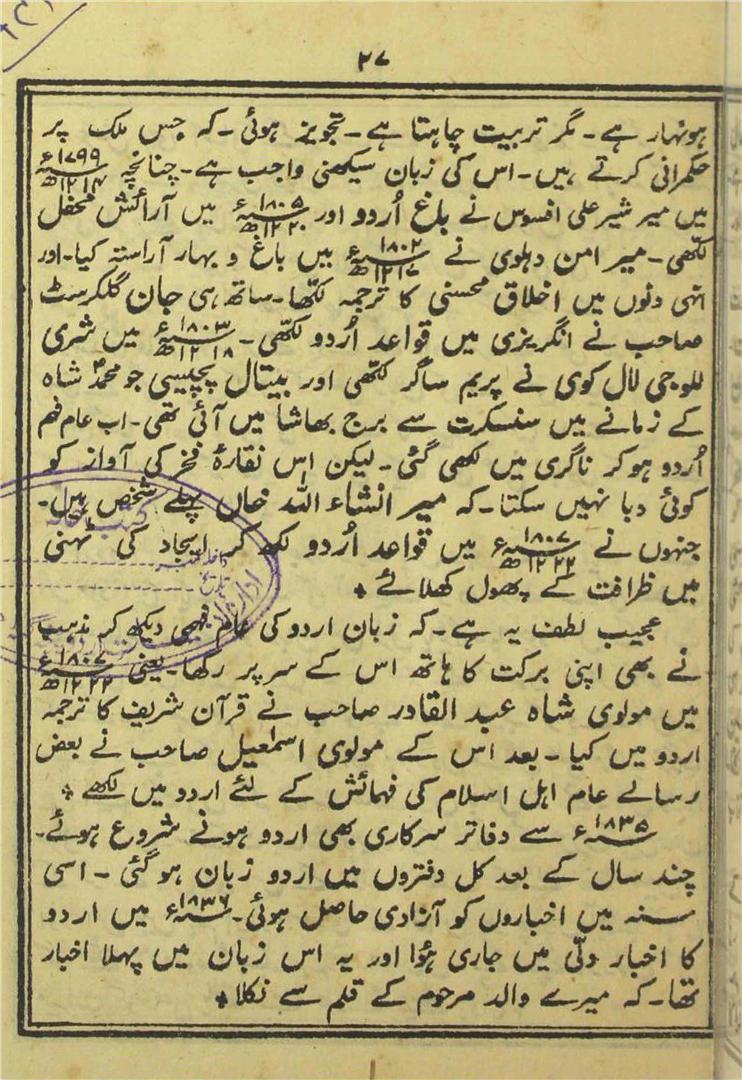 ۲۷
ہونہار ہے۔ مگر تربیت چاہتا ہے۔ تجویز ہوئی۔ کہ جس ملک پر
حکمرانی کرتے ہیں۔ اس کی زبان سیکھنی واجب ہے۔ چنانچہ ۱۷۹۹ء ۱۲۱۴ھ
میں میر شیر علی افسوس نے باغ اُردو اور ۱۸۰۵ء ۱۲۲۰ھ میں آرائش محفل
لکھی۔ میر امن دہلوی نے ۱۸۰۲ء ۱۲۱۷ھ میں باغ و بہار آراستہ کیا۔ اور
انہی دنوں میں اخلاق محسنی کا ترجمہ لکھا۔ ساتھ ہی جان گلکرسٹ
صاحب نے انگریزی میں قواعد اُردو لکھی۔ ۱۸۰۳ء ۱۲۱۸ھ میں شری
للوجی لال کوی نے پریم ساگر لکھی اور بیتال پچیسی جو محمدؐ شاہ
کے زمانے میں سنسکرت سے برج بھاشا میں آئی تھی۔ اب عام فہم
اُردو ہو کر ناگری میں لکھی گئی۔ لیکن اس نقارۂ فخر کی آواز کو
کوئی دبا نہیں سکتا۔ کہ میر انشاء اللہ خاں پہلے شخص ہیں۔
جنہوں نے ۱۸۰۷ء ۱۲۲۲ھ میں قواعد اُردو لکھ کر ایجاد کی ٹہنی
میں ظرافت کے پھول کھلائے ٭
عجیب لطف یہ ہے۔ کہ زبان اردو کی عام فہمی دیکھ کر مذہب
نے بھی اپنی برکت کا ہاتھ اس کے سر پر رکھا۔ یعنی ۱۸۰۷ء ۱۲۲۲ھ
میں مولوی شاہ عبد القادر صاحب نے قرآن شریف کا ترجمہ
اردو میں کیا۔ بعد اس کے مولوی اسمٰعیل صاحب نے بعض
رسالے عام اہل اسلام کی فہمائش کے لئے اردو میں لکھے ٭
۱۸۳۵ء سے دفاتر سرکاری بھی اردو ہونے شروع ہوئے۔
چند سال کے بعد کل دفتروں میں اردو زبان ہو گئی۔ اسی
سنہ میں اخباروں کو آزادی حاصل ہوئی۔ ۱۸۳۶ء میں اردو
کا اخبار دلّی میں جاری ہؤا اور یہ اس زبان میں پہلا اخبار
تھا۔ کہ میرے والد مرحوم کے قلم سے نکلا ٭